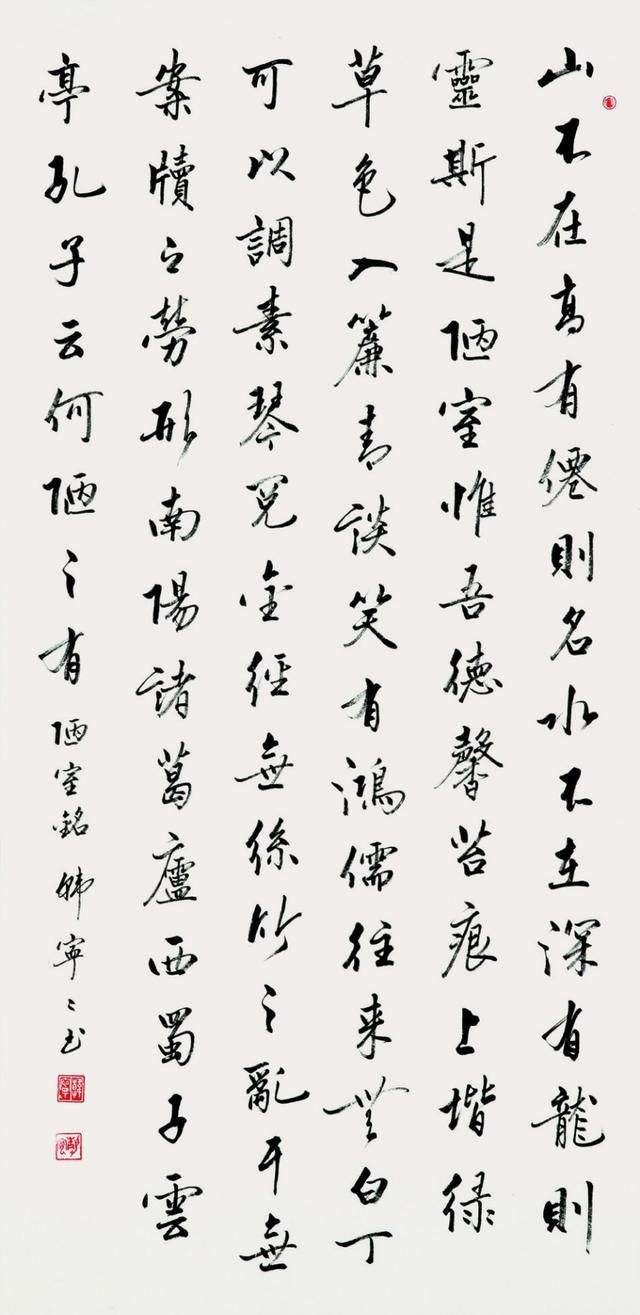 山不在高有僊則名水不在深有龍則
靈斯是陋室惟吾德馨苔痕上堦緑
草色入簾青談笑有鴻儒往來無白丁
可以調素琴閱金經無絲竹之亂耳無
案牘之勞形南陽諸葛廬西蜀子雲
亭孔子云何陋之有 陋室銘 韓寧〻書